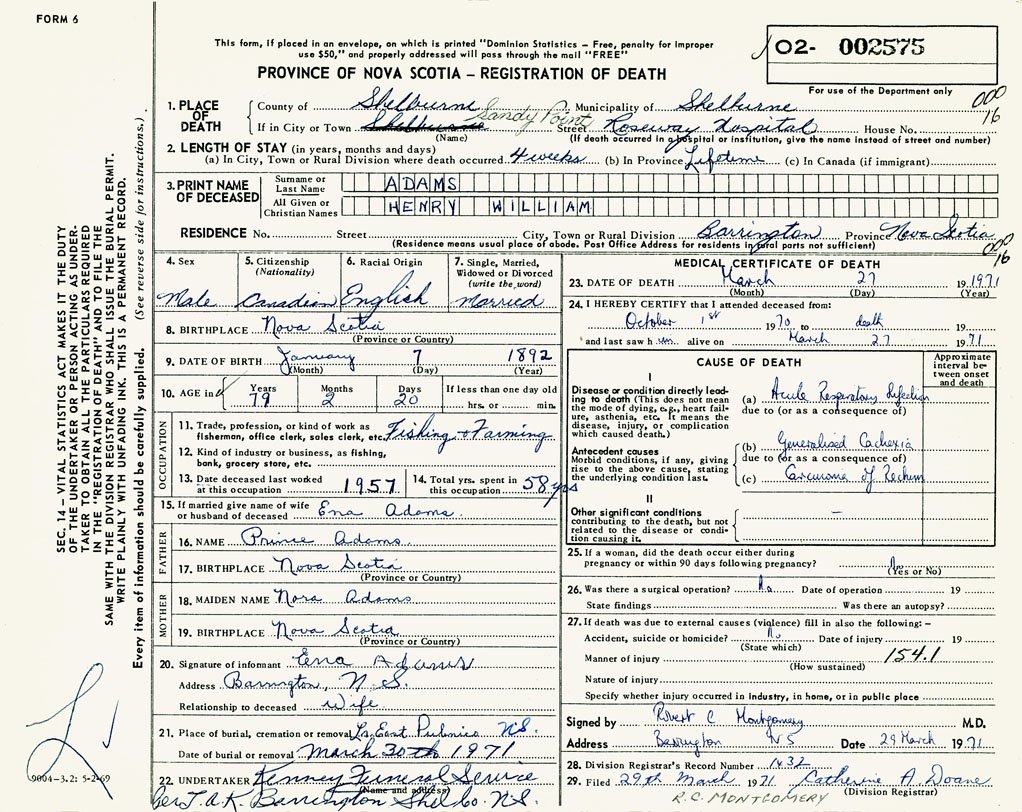 FORM 6
This form, if placed in an envelope, on which is printed "Dominion Statistics – Free, penalty for improper
use $50," and properly addressed will pass through the mail "FREE"
PROVINCE OF NOVA SCOTIA – REGISTRATION OF DEATH
O2- 002575
For use of the Department only
000
16
1. PLACE OF DEATH
County of Shelburne Municipality of Shelburne
If in City or Town Shelburne Sandy Point Street Roseway Hospital House No.
(Name) (If death occurred in a hospital or institution, give the name instead of street and number)
2. LENGTH OF STAY (in years, months and days)
(a) In City, Town or Rural Division where death occurred 4 weeks (b) In Province Lifetime (c) In Canada (if immigrant)
3. PRINT NAME OF DECEASED
Surname or Last Name ADAMS
All Given or Christian Names HENRY WILLIAM
RESIDENCE No. Street City, Town or Rural Division Barrington Province Nova Scotia
(Residence means usual place of abode. Post Office Address for residents in rural parts not sufficient)
000
16
4. Sex
Male
5. Citizenship
(Nationality)
Canadian
6. Racial Origin
English
7. Single, Married,
Widowed or Divorced
(write the word)
Married
8. BIRTHPLACE Nova Scotia
(Province or Country)
9. DATE OF BIRTH January 7 1892
(Month) (Day) (Year)
10. AGE in
Years Months Days If less than one day old
79 2 20 hrs. or min.
OCCUPATION
11. Trade, profession, or kind of work as
fisherman, office clerk, sales clerk, etc. Fishing + Farming
12. Kind of industry or business, as fishing,
bank, grocery store, etc.
13. Date deceased last worked
at this occupation 1957
14. Total yrs. spent in
this occupation 58 yrs
15. If married give name of wife
or husband of deceased Ena Adams
FATHER
16. NAME Prince Adams
17. BIRTHPLACE Nova Scotia
(Province or Country)
MOTHER
18. MAIDEN NAME Nora Adams
19. BIRTHPLACE Nova Scotia
(Province or Country)
20. Signature of informant Ena Adams
Address Barrington, N.S.
Relationship to deceased Wife
21. Place of burial, cremation or removal Lr. East Pubnico N.S.
Date of burial or removal March 30th 1971
22. UNDERTAKER Kenney Funeral Service
(Name and address)
Barrington Shelbo. N.S.
MEDICAL CERTIFICATE OF DEATH
23. DATE OF DEATH March 27 1971
(Month) (Day) (Year)
24. I HEREBY CERTIFY that I attended deceased from:
October 1st 1970 to death 19
and last saw him alive on March 27 1971
CAUSE OF DEATH
Approximate
interval be-
tween onset
and death
I
Disease or condition directly lead-
ing to death (This does not mean
the mode of dying, e.g., heart fail-
ure, asthenia, etc. It means the
disease, injury, or complication
which caused death.)
(a) Acute Respiratory Infection
due to (or as a consequence of)
Antecedent causes
Morbid conditions, if any, giving
rise to the above cause, stating
the underlying condition last.
(b) Generalised Cachexia
due to (or as a consequence of)
(c) Carcinoma of Rectum
II
Other significant conditions
contributing to the death, but not
related to the disease or condi-
tion causing it. –
25. If a woman, did the death occur either during
pregnancy or within 90 days following pregnancy?
(Yes or No)
26. Was there a surgical operation? No Date of operation 19
State findings Was there an autopsy?
27. If death was due to external causes (violence) fill in also the following: –
Accident, suicide or homicide? No Date of injury 19
(State which)
Manner of injury 154.1
(How sustained)
Nature of injury
Specify whether injury occurred in industry, in home, or in public place
Signed by Robert C Montgomery M.D.
Address Barrington NS Date 29 March 1971
28. Division Registrar's Record Number 1432
29. Filed 29th March 1971 Catherine A. Doane
(Division Registrar)
R.C. MONTGOMERY
SEC. 14 – VITAL STATISTICS ACT MAKES IT THE DUTY
OF THE UNDERTAKER OR PERSON ACTING AS UNDER-
TAKER TO OBTAIN ALL THE PARTICULARS REQUIRED
IN THE "REGISTRATION OF DEATH" AND TO FILE THE
SAME WITH THE DIVISION REGISTRAR WHO SHALL ISSUE THE BURIAL PERMIT.
WRITE PLAINLY WITH UNFADING INK. THIS IS A PERMANENT RECORD.
Every item of information should be carefully supplied. (See reverse side for instructions.)
9004-3.2: 5-2-69